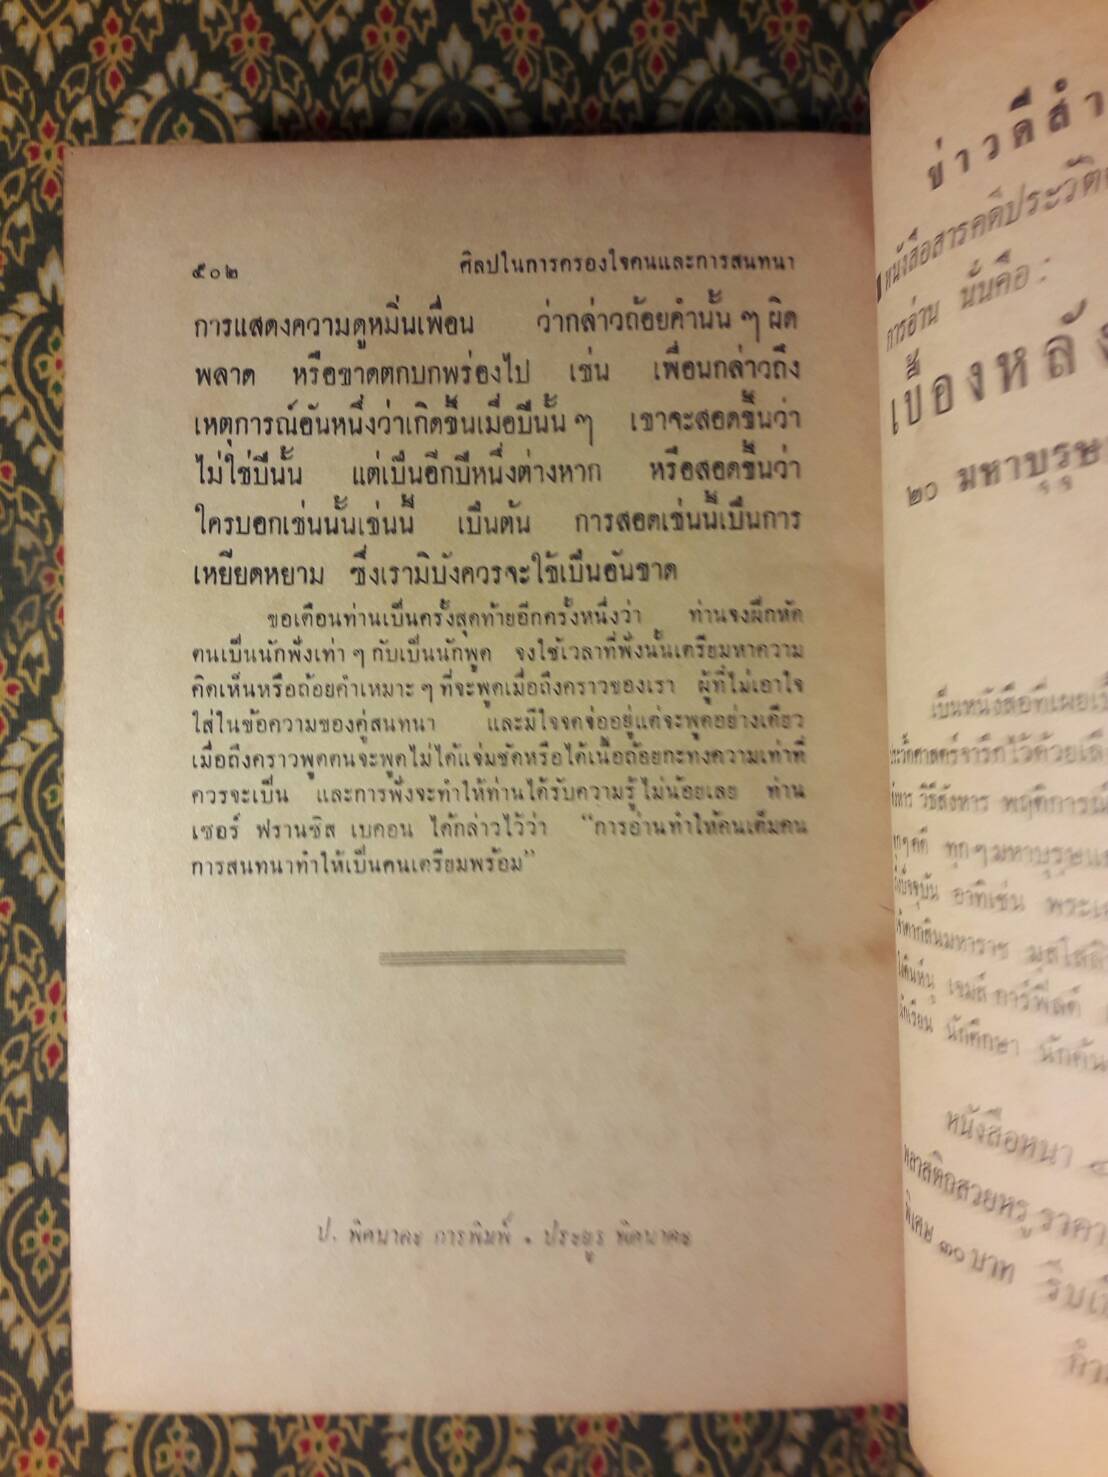 ๕๐๒ ศิลปในการครองใจคนและการสนทนา
การแสดงความดูหมิ่นเพื่อน ว่ากล่าวถ้อยคำนั้น ๆ ผิด
พลาด หรือขาดตกบกพร่องไป เช่น เพื่อนกล่าวถึง
เหตุการณ์อันหนึ่งว่าเกิดขึ้นเมื่อปีนั้น ๆ เขาจะสอดขึ้นว่า
ไม่ใช่ปีนั้น แต่เป็นอีกปีหนึ่งต่างหาก หรือสอดขึ้นว่า
ใครบอกเช่นนั้นเช่นนี้ เป็นต้น การสอดเช่นนี้เป็นการ
เหยียดหยาม ซึ่งเรามิบังควรจะใช้เป็นอันขาด
ขอเตือนท่านเป็นครั้งสุดท้ายอีกครั้งหนึ่งว่า ท่านจงฝึกหัด
ตนเป็นนักฟังเท่า ๆ กับเป็นนักพูด จงใช้เวลาที่ฟังนั้นเตรียมหาความ
คิดเห็นหรือถ้อยคำเหมาะ ๆ ที่จะพูดเมื่อถึงคราวของเรา ผู้ที่ไม่เอาใจ
ใส่ในข้อความของคู่สนทนา และมีใจจดจ่ออยู่แต่จะพูดอย่างเดียว
เมื่อถึงคราวพูดตนจะพูดไม่ได้แจ่มชัดหรือได้เนื้อถ้อยกะทงความเท่าที่
ควรจะเป็น และการฟังจะทำให้ท่านได้รับความรู้ไม่น้อยเลย ท่าน
เซอร์ ฟรานซิส เบคอน ได้กล่าวไว้ว่า “การอ่านทำให้คนเต็มคน
การสนทนาทำให้เป็นคนเตรียมพร้อม”
ป. พิศนาคะ การพิมพ์ • ประยูร พิศนาคะ
ข่าวดีสำ
หนังสือสารคดีประวัติ
การอ่าน นั่นคือ :
เบื้องหลัง
๒๐ มหาบุรุษ
เป็นหนังสือที่เผย
ประวัติศาสตร์จารึกไว้ด้วย
วิธีสังหาร พฤติการณ์
ทุกๆคดี ทุกๆมหาบุรุษ
ปัจจุบัน อาทิเช่น
ตากสินมหาราช มุสโสลินี
เจมส์ การ์ฟิลด์
นักเรียน นักศึกษา นักค้น
หนังสือหนา
พลาสติกสวยหรู ราคา
พิเศษ ๓๐ บาท รีบ